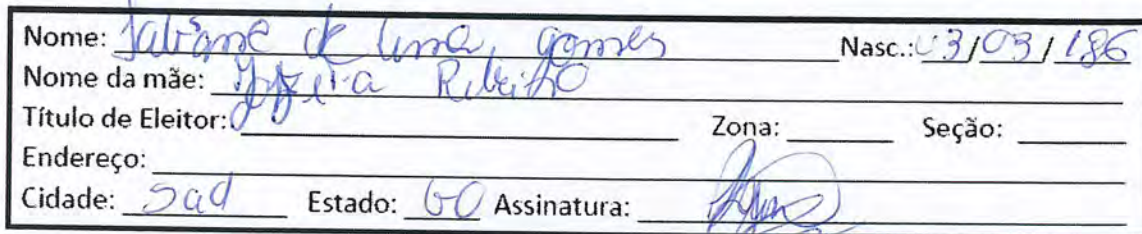 Nome: Fabiane de Lima Gomes Nasc.: 03/03/186
Nome da mãe: Ribeiro
Título de Eleitor: Zona: Seção:
Endereço:
Cidade: Sad Estado: GO Assinatura: